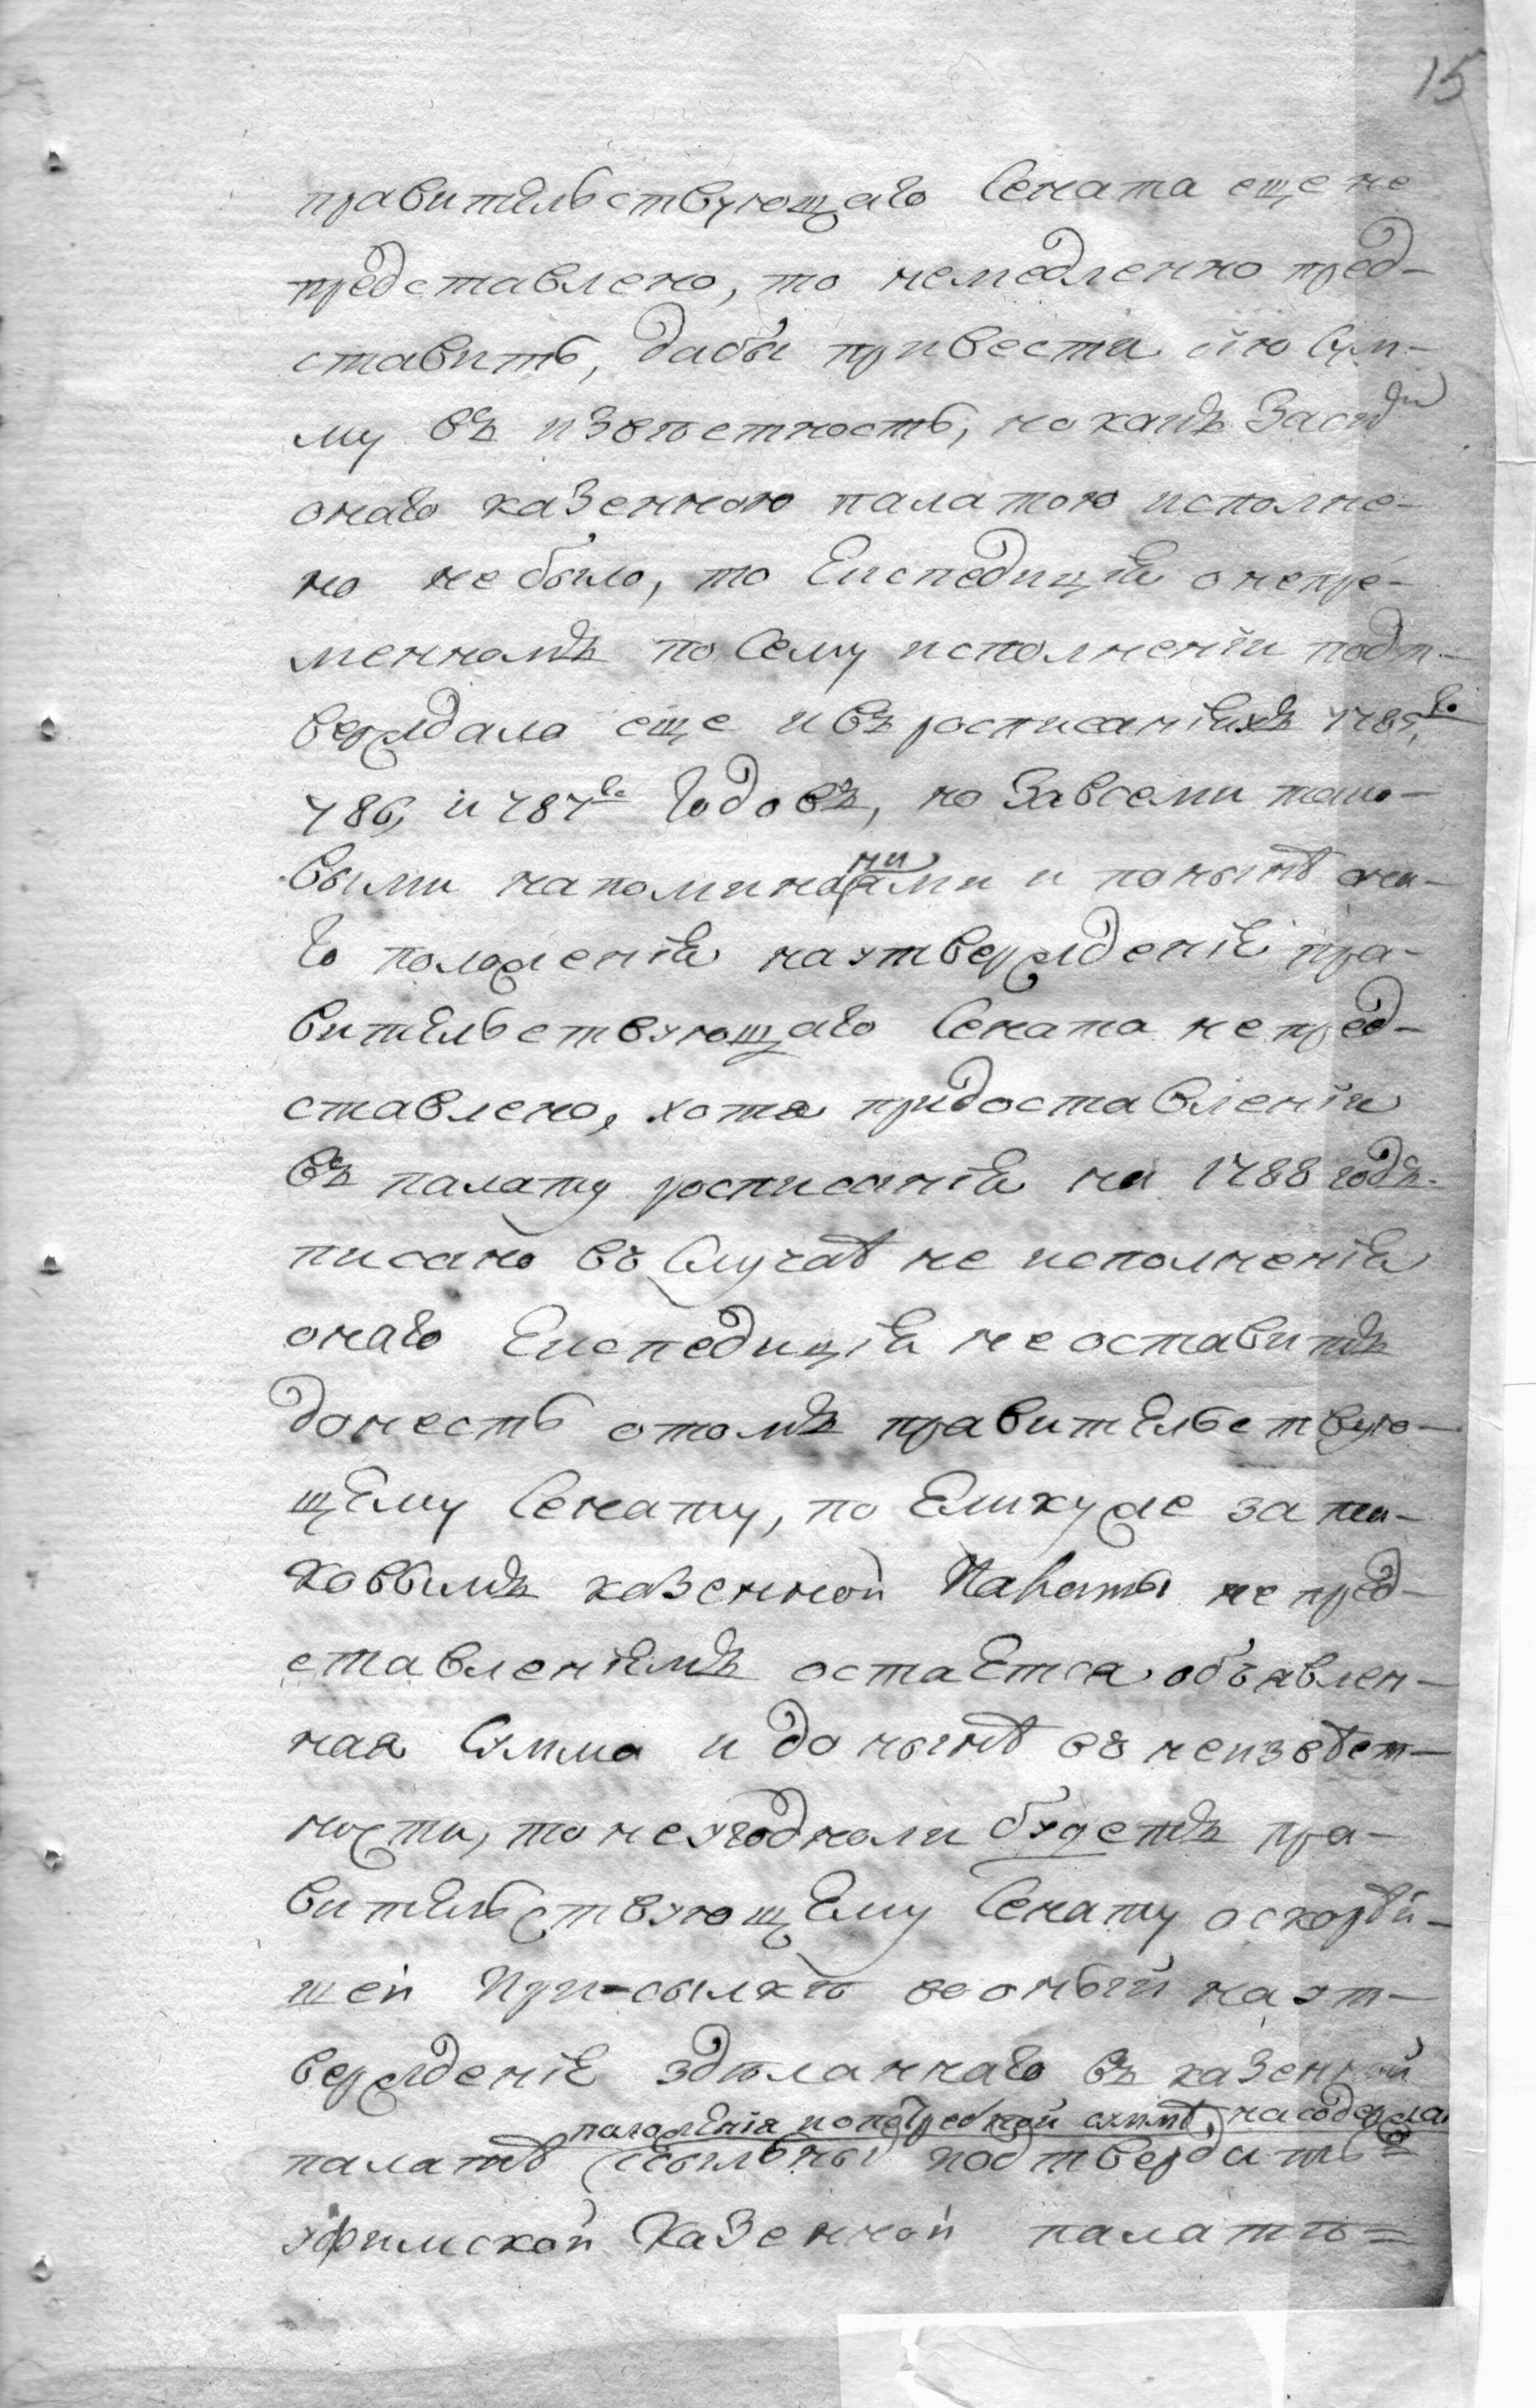 15
правительствующаго Сената еще не
представлено, то немедленно пред-
ставить, дабы привести сiю сум-
му въ извѣстность, но какъ засим
онаго казенною палатою исполне-
но не было, то Експедицiя онепре-
менномъ по Сему исполненiи подт-
верждала еще ивъ росписанiяхъ 1785,го
786, и 787го Годовъ, но Завсеми тако-
выми напоминанiями и понынѣ она-
го положенiя наутвержденiе пра-
вительствующаго Сената непред-
ставлено, хотя придоставленiи
въ палату росписанiя на 1788 годъ.
писано въ Случаѣ не исполненiя
онаго Експедицiя неоставитъ
донесть отомъ правительствую-
щему Сенату, по Елику же зата-
ковымъ казенной Палаты непред-
ставленiемъ остаетса объявлен-
ная Сумма и до нынѣ въ неизвѣст-
ности, то неугодноли будетъ пра-
вительствующему Сенату оскорѣй-
шей При-сылкѣ вооный наут-
вержденiе здѣланнаго въ казенной
положенiя попотребной суммѣ, насодержа
палатѣ Ссыльныхъ подтвердить
уфимской Казенной палатѣ=